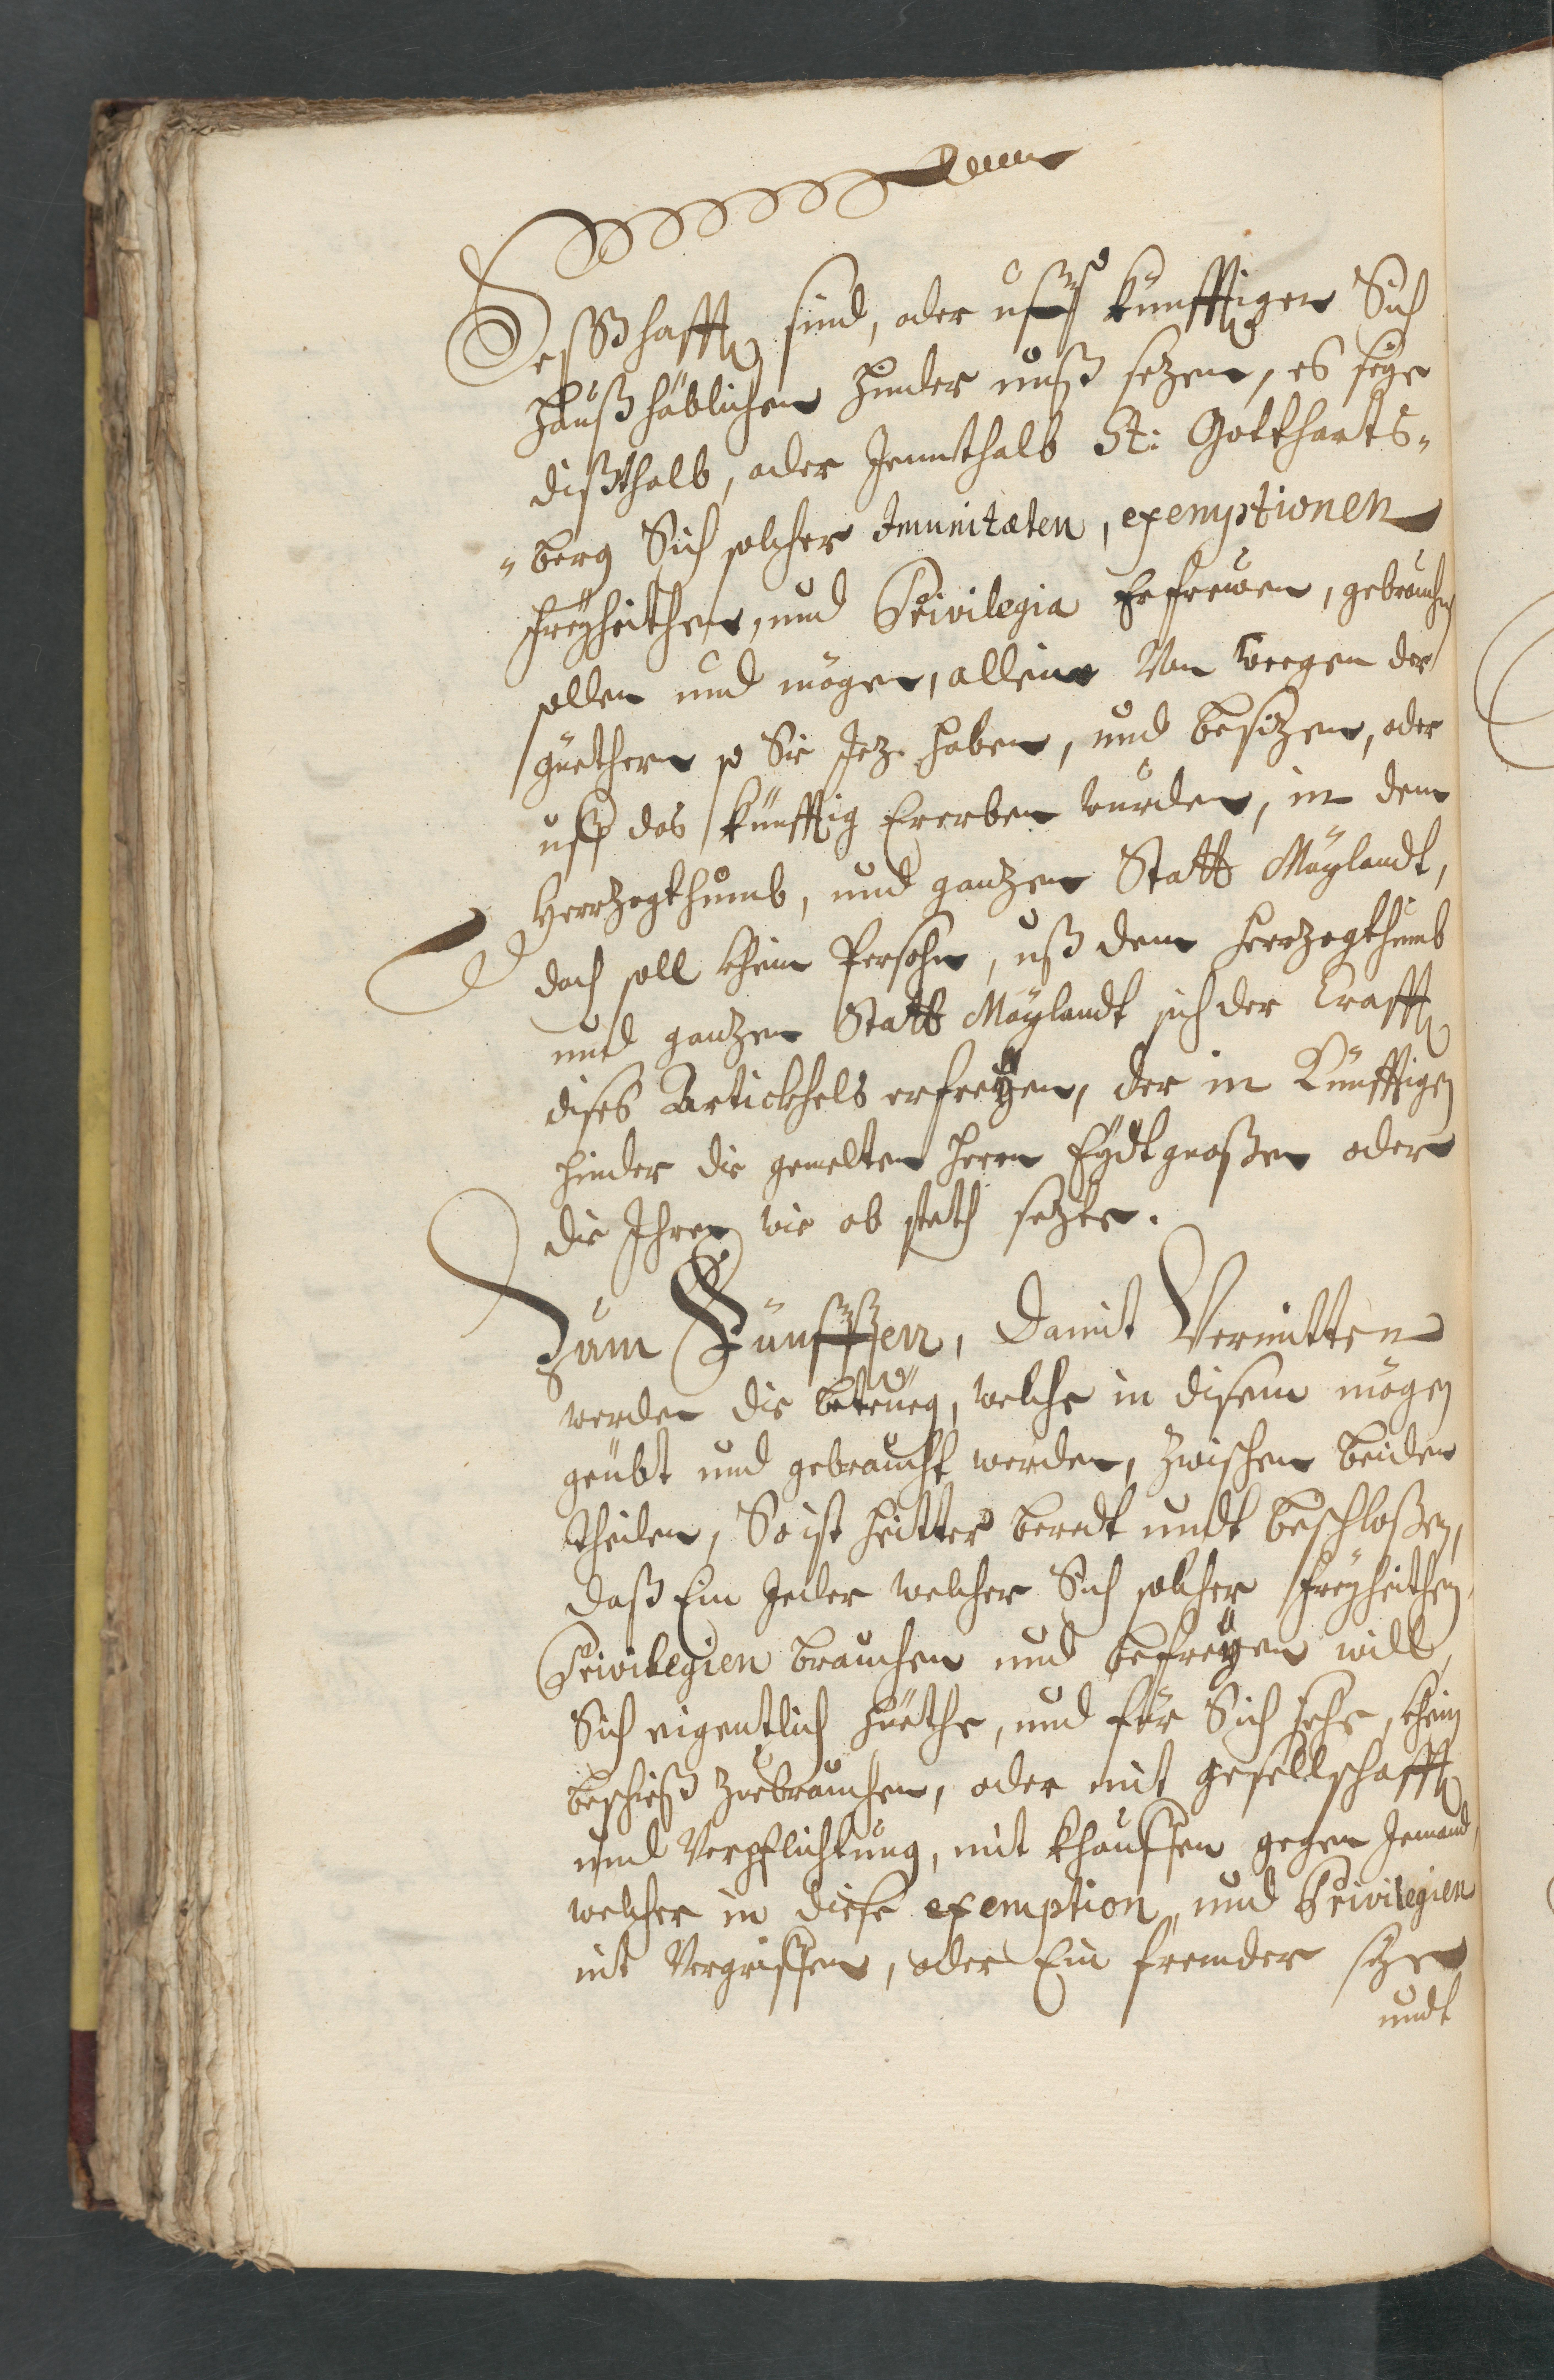 Seßßhafft sind, oder uffs künfftigen Sich
Haußhäblichen hinder unß sezen, es seÿe
dißthalb, oder Jennthalb St: Gotthards„
„berg Sich solcher Imunitæten, exemptionen
freÿheithen, und Privilegia Erfreüwen, gebrauchen
sollen und mögen, allein von weegen der
güethern so Sie Jez haben, und besizen, oder
uff das künfftig Ererben wurden, in dem
Herzogthumb, und ganzen Statt Maÿlandt,
doch soll khein Persohn, uß dem Herzogthumb
und ganzen Statt Maÿlandt sich der Crafft
dises Artickhels erfreÿen, der in Künfftigen
hinder die gemelten Herrn Eÿdtgnoßen oder
die Ihren wie ob steth sezte.
Zum Fünfften, Damit Vermitten
werden die betrüeg, welche in disem mögen
geübt und gebraucht werden, zwischen beiden
theilen, So ist heitter beredt undt beschloßen,
daß Ein Jeder welcher Sich solcher freÿheithen,
Privilegien brauchen und befreÿen will,
Sich eigentlich hüethe, und für Sich sehe, khein
beschieß zuebrauchen, oder mit gesellschafft
und Verpflichtung, mit khauffen gegen Jemand,
welcher in diese exemption, und Privilegien
nit Vergriffen, oder Ein fremder seÿe
undt